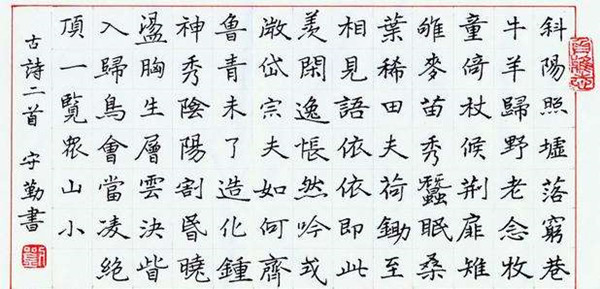 斜陽照墟落窮巷
牛羊歸野老念牧
童倚杖候荆扉雉
雊麥苗秀蠶眠桑
葉稀田夫荷鋤至
相見語依依即此
羨閑逸悵然吟式
微岱宗夫如何齊
魯青未了造化鍾
神秀陰陽割昏曉
盪胸生層雲決眥
入歸鳥會當凌絕
頂一覽眾山小
古詩二首 守勤書